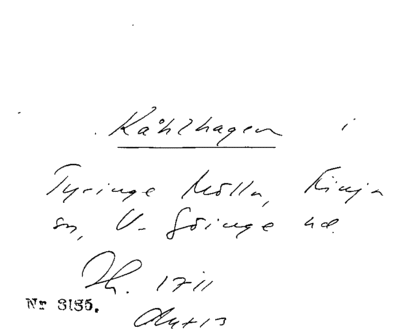 Kåhlhagen i
Tyringe Mölla, Finja
sn, V. Göinge hd.
Jh. 1711
Nr 3135.